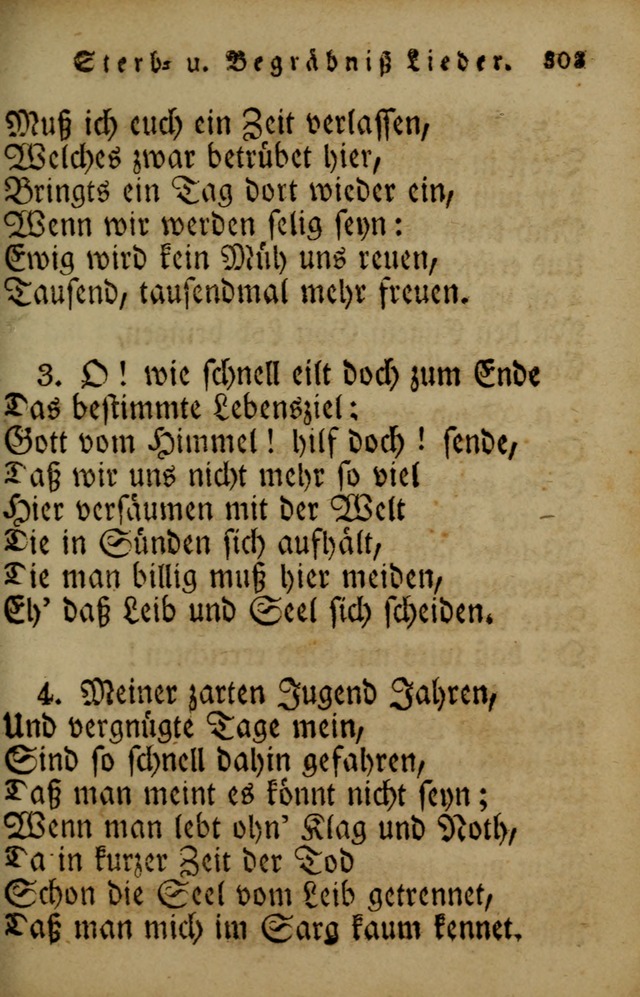 Sterb- u. Begräbniß Lieder. 303
Muß ich euch ein Zeit verlassen,
Welches zwar betrübet hier,
Bringts ein Tag dort wieder ein,
Wenn wir werden selig seyn:
Ewig wird kein Müh uns reuen,
Tausend, tausendmal mehr freuen.
3. O! wie schnell eilt doch zum Ende
Das bestimmte Lebensziel;
Gott vom Himmel! hilf doch! sende,
Daß wir uns nicht mehr so viel
Hier versäumen mit der Welt
Die in Sünden sich aufhält,
Die man billig muß hier meiden,
Eh' daß Leib und Seel sich scheiden.
4. Meiner zarten Jugend Jahren,
Und vergnügte Tage mein,
Sind so schnell dahin gefahren,
Daß man meint es könnt nicht seyn;
Wenn man lebt ohn' Klag und Noth,
Da in kurzer Zeit der Tod
Schon die Seel vom Leib getrennet,
Daß man mich im Sarg kaum kennet.